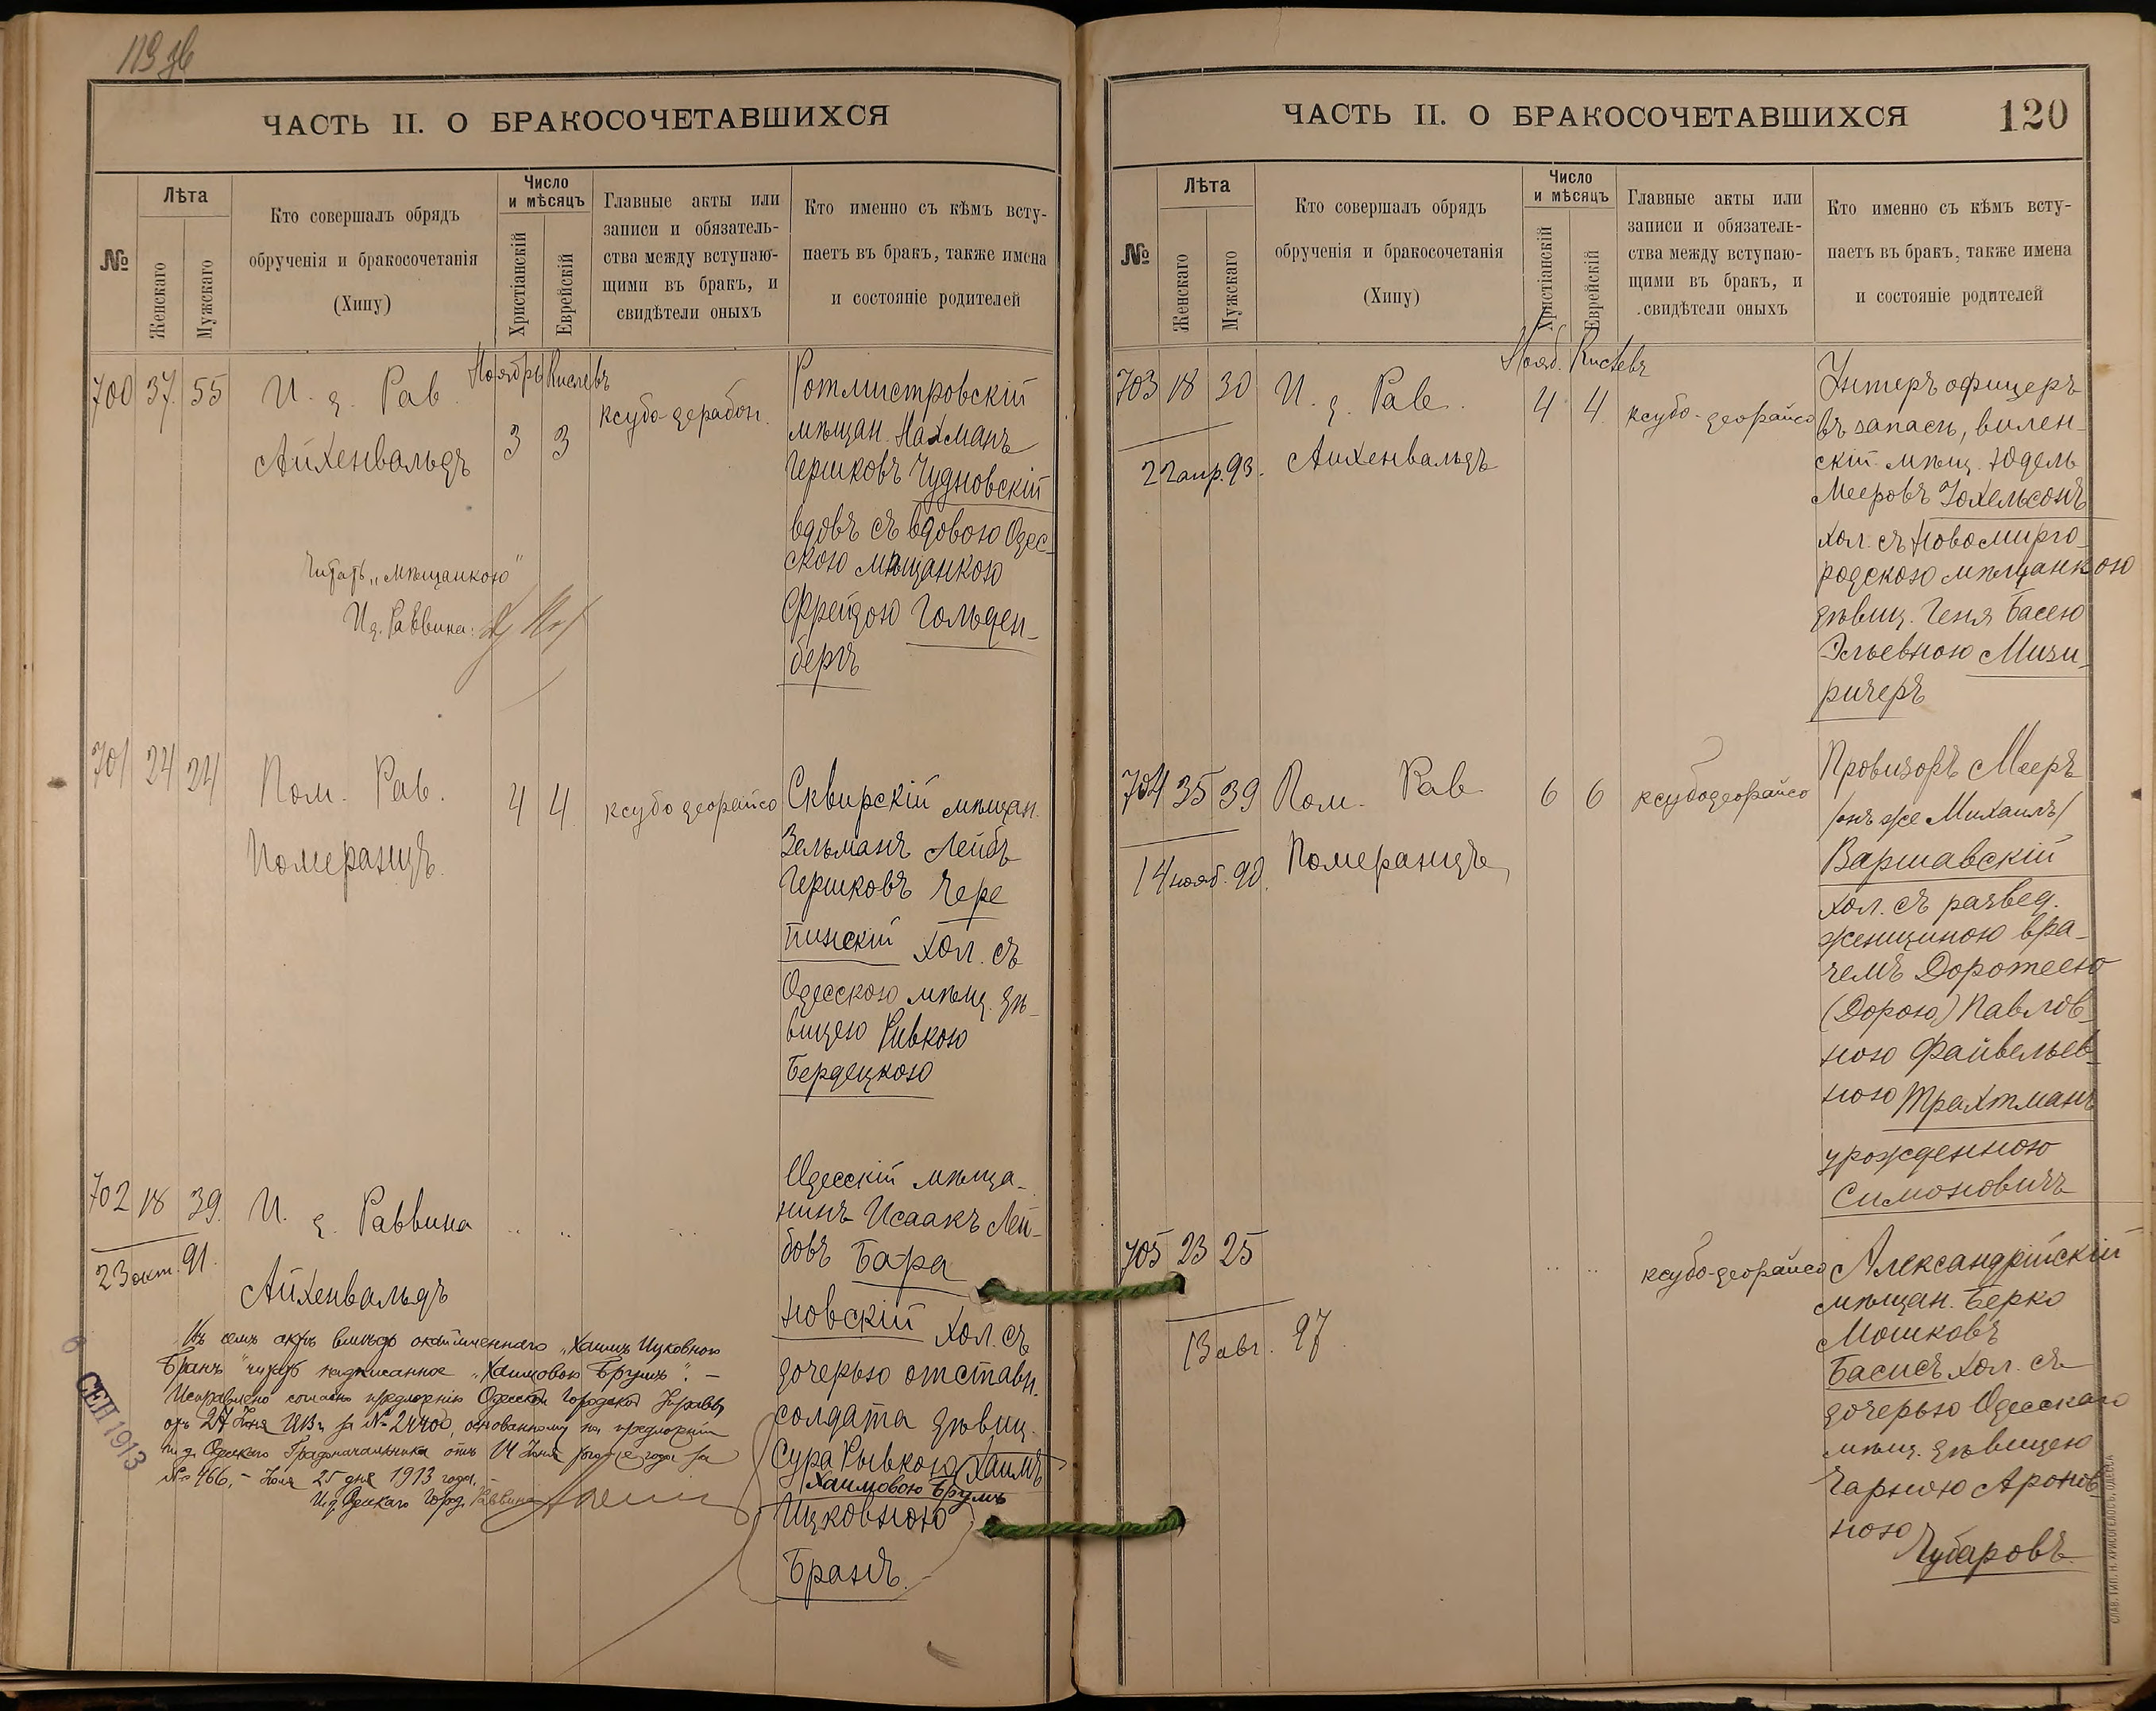 119 об
ЧАСТЬ II. О БРАКОСОЧЕТАВШИХСЯ
№
Лѣта
Женскаго
Мужскаго
Кто совершалъ обрядъ
обрученія и бракосочетанія
(Хипу)
Число
и мѣсяцъ
Христіанскій
Еврейскій
Главные акты или
записи и обязатель-
ства между вступаю-
щими въ бракъ, и
свидѣтели оныхъ
Кто именно съ кѣмъ всту-
паетъ въ бракъ, также имена
и состояніе родителей
Ноябрь Кислевъ
700 37 55
И. д. Рав.
Айхенвальдъ
3 3
ксубо-дерабон.
Ротмистровскій
мѣщан. Нахманъ
Гершковъ Чудновскій
вдовъ съ вдовою Одес-
скою мѣщанкою
Фрейдою Гольден-
бергъ
Читать „мѣщанкою"
И д. Раввина:
701 24 24
Пом. Рав.
Померанцъ
4 4
ксубо деорайсо
Сквирскій мѣщан.
Зельманъ Лейбъ
Гершковъ Чере
пинскій хол. съ
Одесскою мѣщ. дѣ-
вицею Ривкою
Бердецкою
702 18 39
23 окт. 91.
И. д. Раввина
Айхенвальдъ
Одесскій мѣща-
нинъ Исаакъ Лей-
бовъ Бара
новскій хол. съ
дочерью отставн.
солдата дѣвиц.
Сура Рывкою Хаимъ
Хаимовою Брумъ
Ицковною
Бранъ.
Въ семъ актѣ вмѣсто окаймленнаго „Хаимъ Ицковною
Бранъ" читать надписанное „Хаимовою Брумъ". —
Исправлено согласно предложенію Одесской Городской Управы
отъ 24 Іюня 1913 г за № 24400, основанному на предложеніи
и. д. Одескаго Градоначальника отъ 14 Іюня того же года за
№ 466. – Іюля 25 дня 1913 года.
И д. Одескаго Город. Раввина
6 СЕН 1913
ЧАСТЬ II. О БРАКОСОЧЕТАВШИХСЯ
120
№
Лѣта
Женскаго
Мужскаго
Кто совершалъ обрядъ
обрученія и бракосочетанія
(Хипу)
Число
и мѣсяцъ
Христіанскій
Еврейскій
Главные акты или
записи и обязатель-
ства между вступаю-
щими въ бракъ, и
свидѣтели оныхъ
Кто именно съ кѣмъ всту-
паетъ въ бракъ, также имена
и состояніе родителей
Нояб. Кислевъ
703 18 30
22 апр. 93.
И. д. Рав.
Айхенвальдъ
4 4
ксубо-деорайсо
Унтеръ офицеръ
въ запасѣ, вилен-
скій мѣщ. Юдель
Мееровъ Іохельсонъ
хол. съ Новомирго-
родскою мѣщанкою
дѣвиц. Геня Басею
Эльевною Мизи-
ричеръ
704 35 39
14 нояб. 90.
Пом. Рав.
Померанцъ
6 6
ксубо деорайсо
Провизоръ Мееръ
/онъ же Михаилъ/
Варшавскій
хол. съ развед.
женщиною вра-
чемъ Доротеею
(Дорою) Павлов-
ною Файвельев-
ною Трахтманъ
урожденною
Симоновичъ
705 23 25
13 авг. 97
ксубо-деорайсо
Александрійскій
мѣщан. Берко
Мошковъ
Басисъ хол. съ
дочерью Одесскаго
мѣщ. дѣвицею
Чарною Аронов-
ною
Чубаровъ
СЛАВ. ТИП. Н. ХРИСОГЕЛОСЪ, ОДЕССА